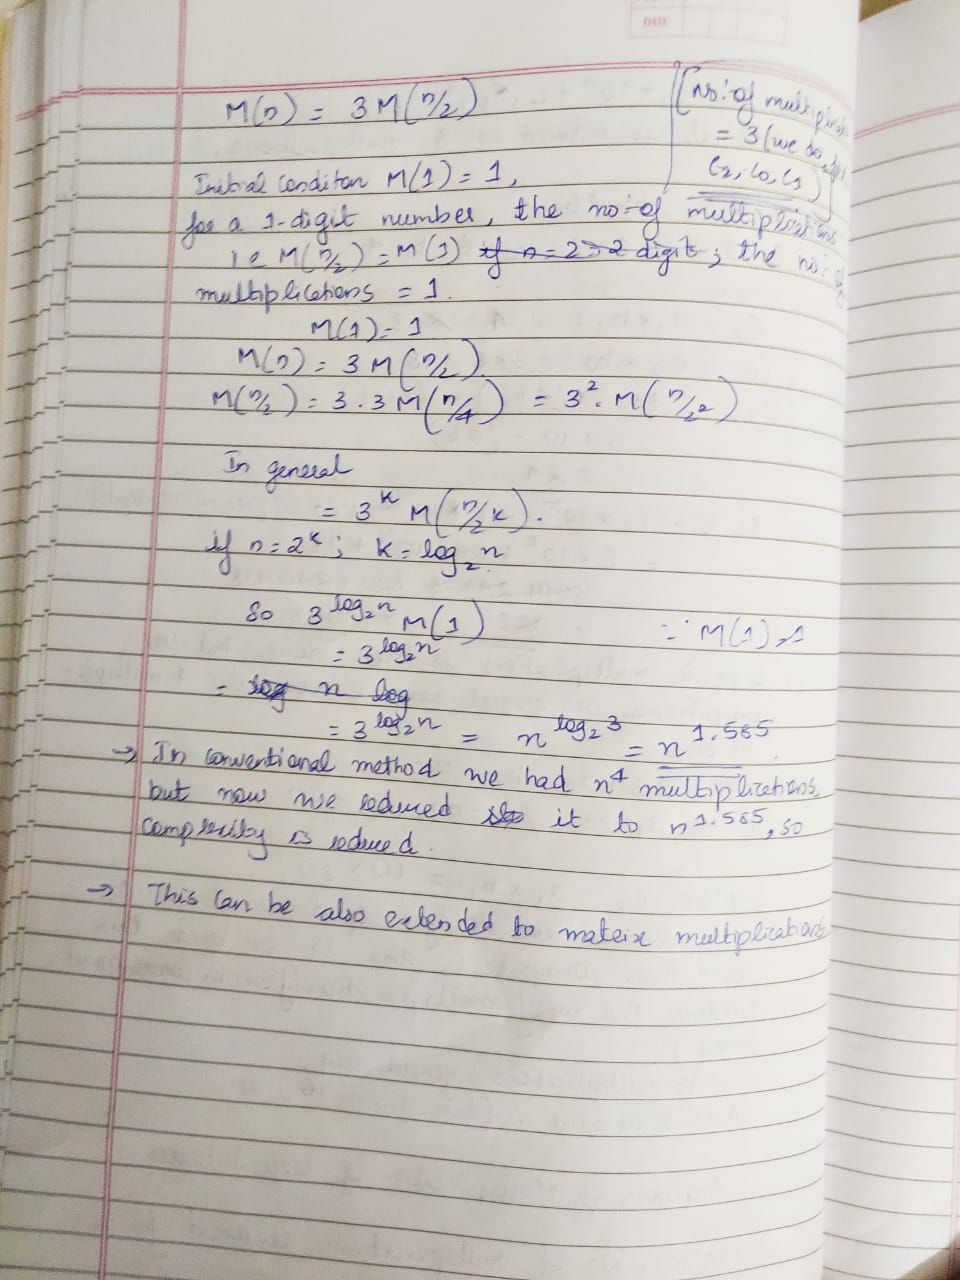 DATE
M(n) = 3 M(n/2)
[no: of multiplicat
= 3 (we do for
C2, C0, C1)
Initial Conditon M(1) = 1,
for a 1-digit number, the no: of multiplications
i e M(n/2) = M(1) if n = 2 => 2 digit, the no: of
multiplications = 1.
M(1) = 1
M(n) = 3 M(n/2).
M(n/2) = 3 . 3 M(n/4) = 3². M(n/2²)
In general
= 3^k M(n/2^k).
if n = 2^k ; k = log₂ n.
So 3^log₂n M(1) ∵ M(1) = 1
= 3^log₂n
= log n log
= 3^log₂n = n^log₂3 = n^1.585
→ In conventional method we had n⁴ multiplications,
but now we reduced it to n^1.585, so
complexity is reduced.
→ This can be also extended to matrix multiplications